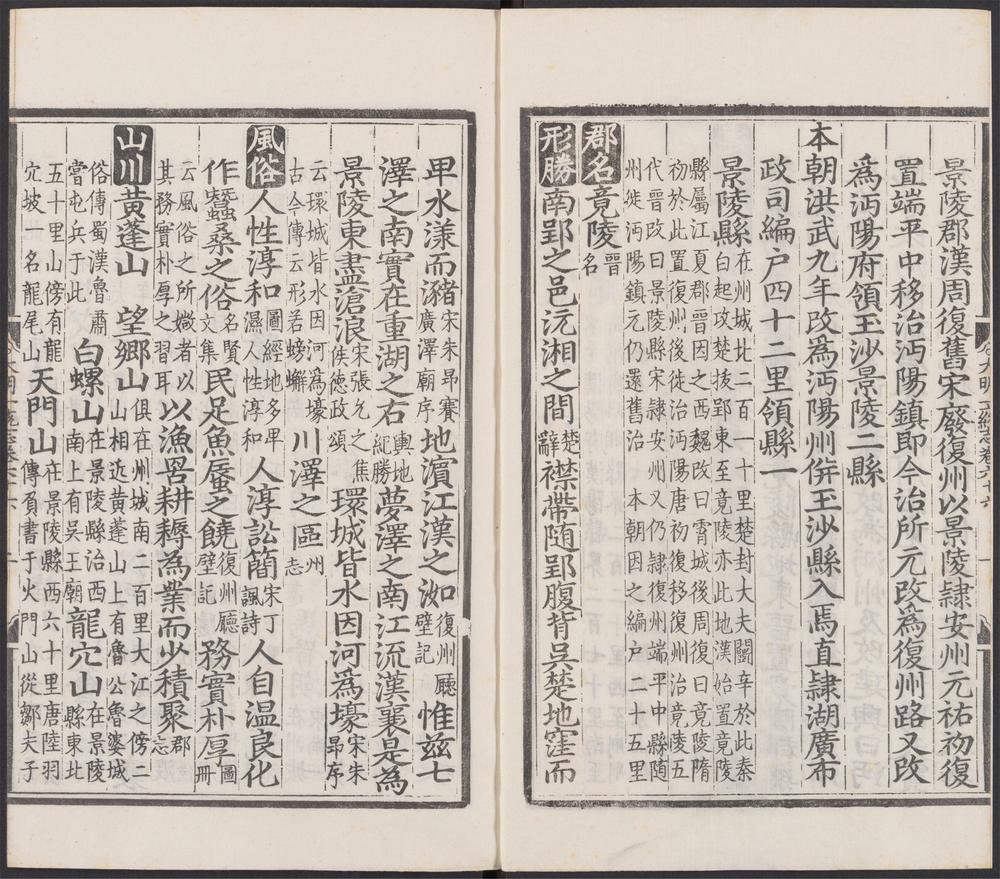 景陵郡漢周復舊宋廢復州以景陵隷安州元祐初復
置端平中移治沔陽鎮即今治所元改爲復州路又改
爲沔陽府領玉沙景陵二縣
本朝洪武九年改爲沔陽州併玉沙縣入焉直隷湖廣布
政司編户四十二里領縣一
景陵縣在州城北二百一十里楚封大夫鬬辛於此秦
白起攻楚拔郢東至竟陵亦此地漢始置竟陵
縣屬江夏郡晉因之西魏改曰霄城後周復曰竟陵隋
初於此置復州後徙治沔陽唐初復移復州治竟陵五
代晉改曰景陵縣宋隷安州又仍隷復州端平中縣隨
州徙沔陽鎮元仍還舊治 本朝因之編户二十五里
郡名竟陵晉名
形勝南郢之邑沅湘之間楚辭襟帶随郢腹背吳楚地窪而
卑水漾而瀦宋朱昂賽廣澤廟序地濵江漢之㳌復州廳壁記惟兹七
澤之南實在重湖之右輿地紀勝夢澤之南江流漢襄是為
景陵東盡滄浪宋張允之焦侯德政頌環城皆水因河為壕宋朱昂序
云環城皆水因河爲壕古今傳云形若螃蠏川澤之區州志
風俗人性淳和圖經地多卑濕人性淳和人淳訟簡宋丁諷詩人自温良化
作蠶桑之俗名賢文集民足魚蜃之饒復州廳壁記務實朴厚圖冊
云風俗之所媺者以其務實朴厚之習耳以漁罟耕耨為業而少積聚郡志
山川黄蓬山 望郷山俱在州城南二百里大江之傍二山相近黄蓬山上有魯公魯婆城
俗傳蜀漢魯肅嘗屯兵于此白螺山在景陵縣治西南上有吳王廟龍穴山在景陵縣東北
五十里山傍有龍穴坡一名龍尾山天門山在景陵縣西六十里唐陸羽傳負書于火門山從鄒夫子